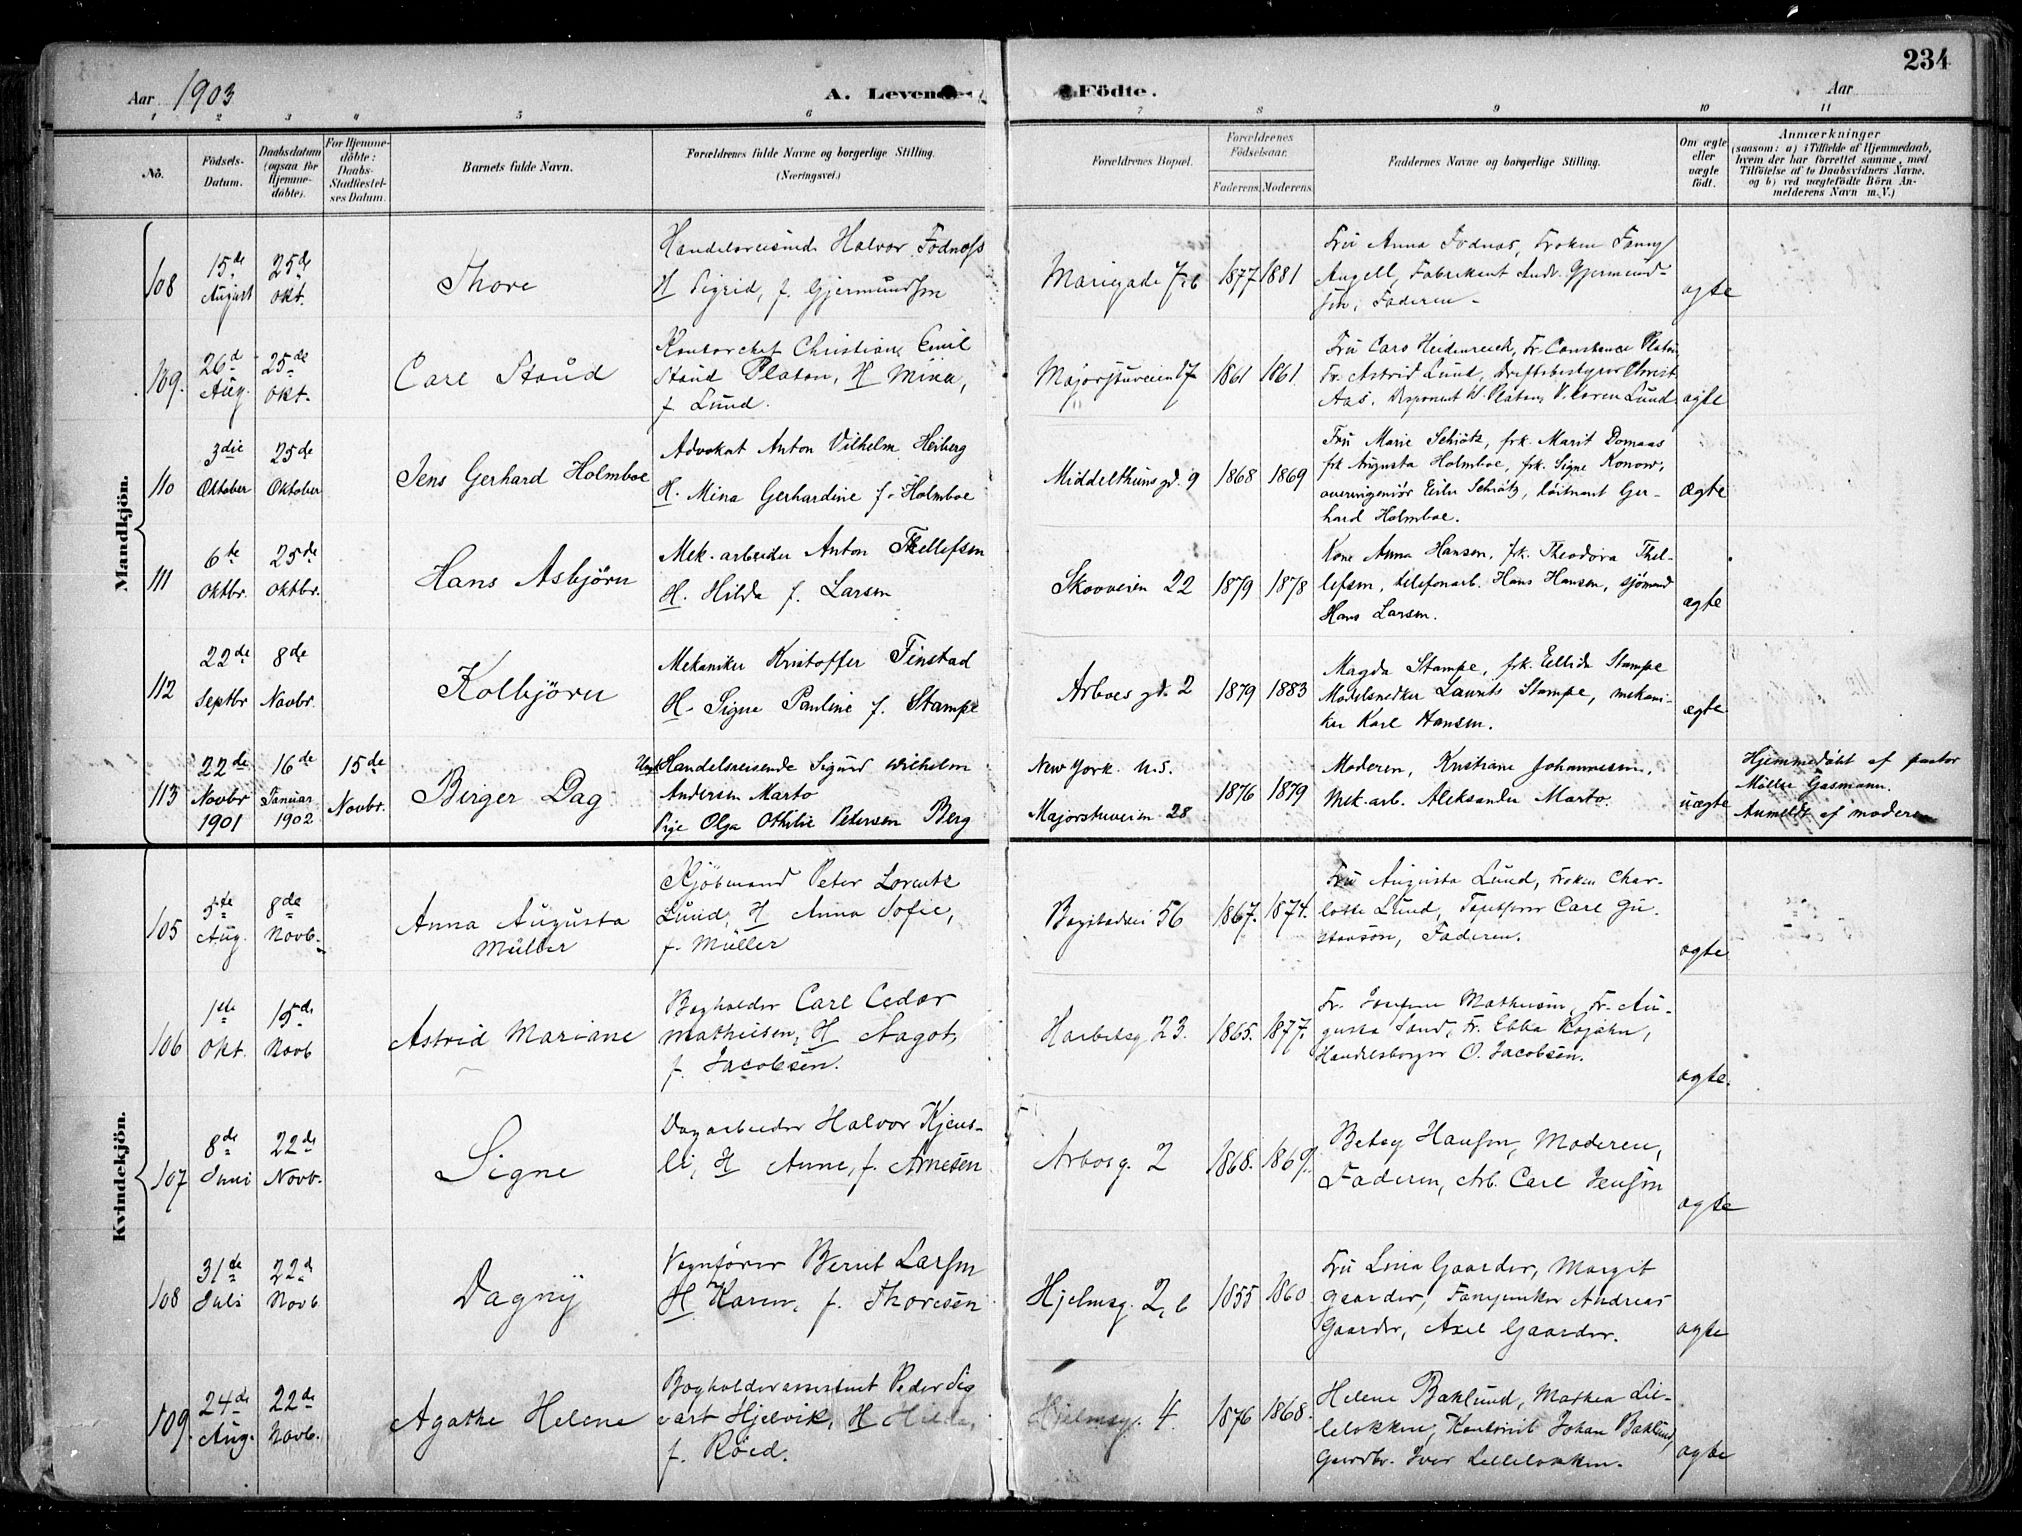 234
Aar 1903
A. Levende
Födte.
Aar
1 2 3 4 5 6 7 8 9 10 11
No.
Födsels-
Datum.
Daabsdatum
(ogsaa for
Hjemme-
döbte).
For Hjemme-
döbte:
Daabs-
Stadfæstel-
ses Datum.
Barnets fulde Navn.
Forældrenes fulde Navne og borgerlige Stilling.
(Næringsvei.)
Forældrenes Bopæl.
Forældrenes
Födselsaar.
Faderens. Moderens.
Faddernes Navne og borgerlige Stilling.
Om ægte
eller
uægte
födt.
Anmærkninger
(saasom: a) i Tilfælde af Hjemmedaab,
hvem der har forrettet samme, med
Tilföielse af to Daabsvidners Navne,
og b) ved uægtefödte Börn An-
melderens Navn m. V.)
Mandkjön.
108
15de
August
25de
Okt.
Thore
Handelsreisende Halvor Fodnæss
H Sigrid, f. Gjermundsen
Mariegade 7b
1877 1881
Fru Anna Fodnæs, Frøken Fanny
Angell, Fabrikant Andr. Gjermund-
sen, Faderen.
ægte
109.
26d
Aug.
25de
Okt.
Carl Stoud
Kontorchef Christian Emil
Stoud Platou, H Mina,
f. Lund.
Majorstuveien 17
1861 1861.
Fru Cars Heidenreich, Fr. Constance Platou
Fr. Astrid Lund, Driftsbestyrer Christ
Aas. Disponent W. Platou, V. Loren Lund
ægte
110
3die
Oktober
25de
Oktober
Jens Gerhard Holmboe
Advokat Anton Vilhelm Heiberg
H. Mina Gerhardine f. Holmboe
Middelthuns gd. 9
1868 1869
Fru Marie Schiøtz, frk. Marit Domaas
frk Augusta Holmboe, frk. Signe Konow,
overingeniör Eiler Schiøtz, löitnant Ger-
hard Holmboe.
ægte
111
6te
Oktbr.
25de
Oktbr.
Hans Asbjörn
Mek. arbeider Anton Thellefsen
H. Hilda f. Larsen
Skovveien 22
1879 1878
Kone Anna Hansen, frk. Theodora Thel-
lefsen, telefonarb. Hans Hansen, sjömand
Hans Larsen.
ægte
112
22de
Septbr
8de
Novbr.
Kolbjörn
Mekaniker Kristoffer Finstad
H. Signe Pauline f. Stampe
Arboes gd. 2
1879 1883
Magda Stampe, frk. Ellida Stampe
Modelsnedker Laurits Stampe, mekani-
ker Karl Hansen.
ægte
113
22de
Novbr
1901
16de
Januar
1902
15de
Novbr.
Birger Dag
Ungk Handelsreisende Sigurd Wilhelm
Andersen Marto
Pige Olga Othilie Petersen Berg
New York. U.S.
Majorstuveien 28
1876 1879
Moderen, Kristiane Johannesen,
Mek. arb. Aleksander Marto.
uægte
Hjemmedöbt af pastor
Möller Gasmann.
Anmeldt af moderen
Kvindekjön.
105
5te
Aug.
8de
Novb.
Anna Augusta
Müller
Kjöbmand Peter Lorentz
Lund, H Anna Sofie,
f. Müller
Bogstadvei 56
1867. 1874.
Fru Augusta Lund, Frøken Char-
lotte Lund, Tapetserer Carl Gu-
stavsön, Faderen.
ægte
106
1ste
Okt.
15de
Novb
Astrid Mariane
Bogholder Carl Cedor
Mathiesen, H Aagot,
f. Jacobsen.
Harbitzg 23.
1865. 1877.
Fr. Josefine Mathiesen, Fr. Au-
gusta Sand, Fr. Ebba Rojahn,
Handelsborger O. Jacobsen.
ægte.
107
8de
Juni
22de
Novb.
Signe
Dagarbeider Halvor Kjens-
li, H Anne, f. Arnesen
Arbosg. 2
1868. 1869.
Betsy Hansen, Moderen,
Faderen, Arb. Carl Jensen
ægte
108
31de
Juli
22d
Novb
Dagny
Vognförer Bernt Larsen
H Karen, f. Thoresen
Hjelmsg. 2,b
1855 1860
Fru Lina Gaarder, Margit
Gaarder, Andreas
Gaarder, Axel Gaarder.
ægte
109.
24de
Aug.
22de
Novb.
Agathe Helene
Bogholderassistent Peder Sig
vart Hjelvik, H Hilda,
f. Röed.
Hjelmsg. 4.
1876 1868.
Helene Baklund, Mathea Lil-
lelokken, Kontorist Johan Baklund,
Gaardbr. Iver Lillelokken.
ægte